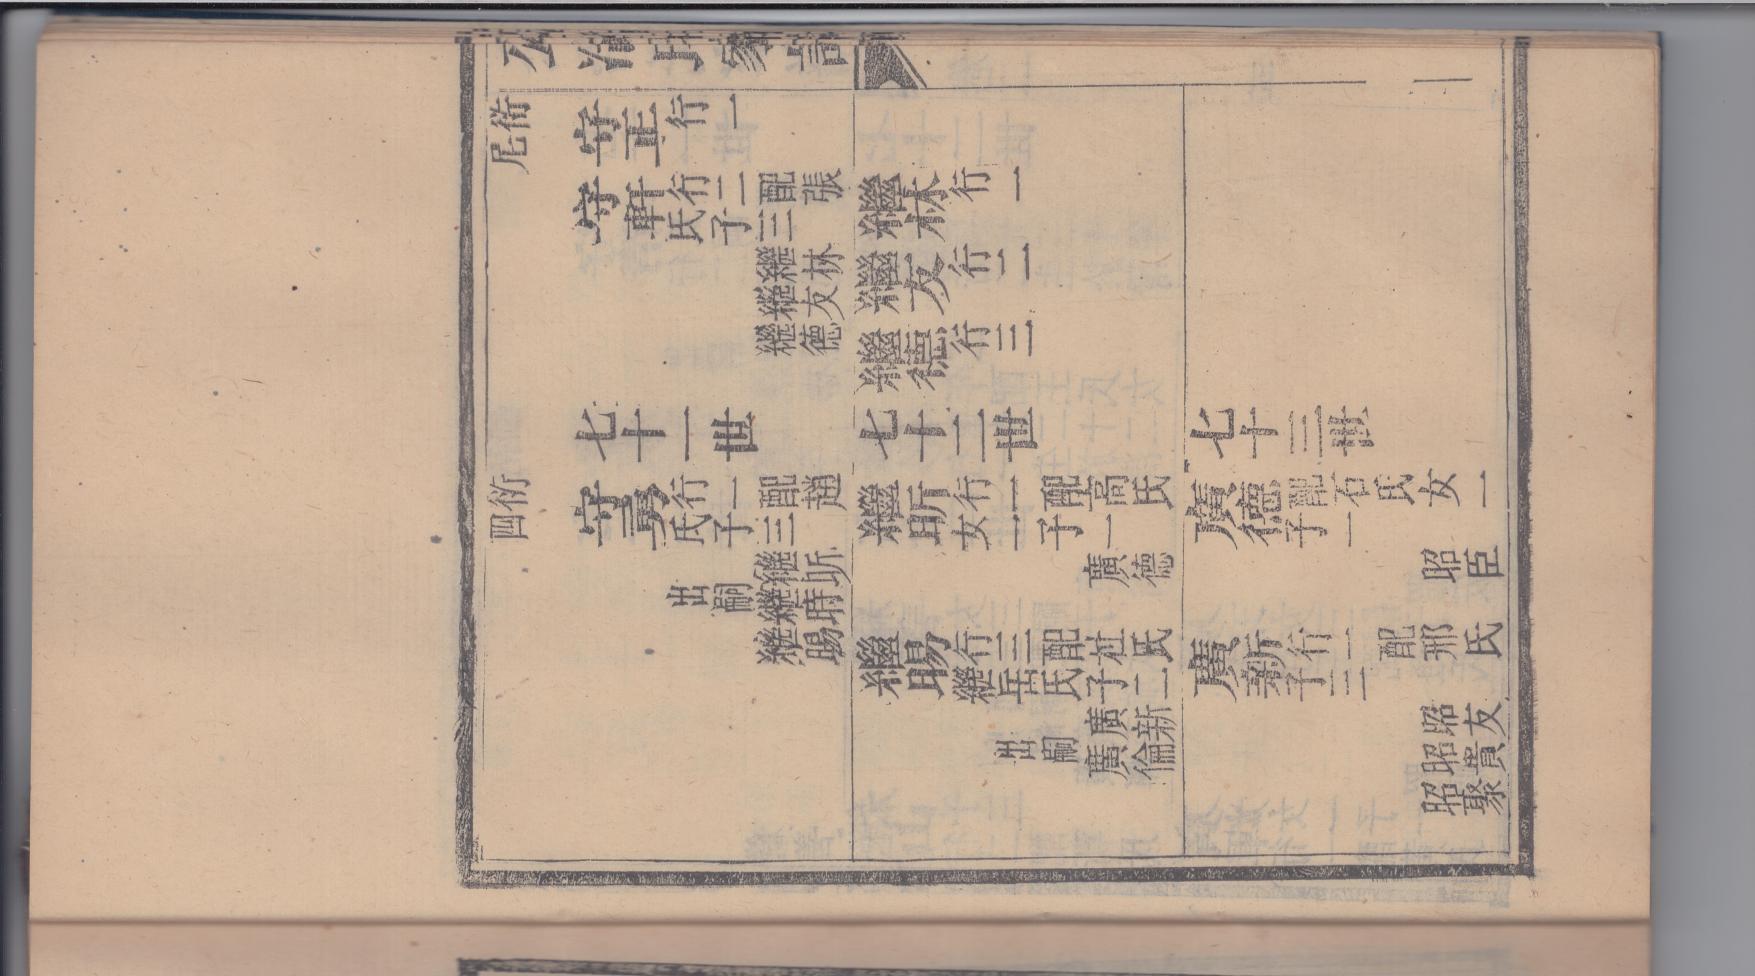 衍尼
守正行一
守軒行二配張
氏子三
繼林
繼友
繼德
七十一世
衍四
守勇行一配趙
氏子三
繼昕
繼時出嗣
繼賜
繼林行一
繼友行二
繼德行三
七十二世
繼昕行一配高氏
女二子一
廣德
繼賜行三配杜氏
繼岳氏子二
廣新
廣倫出嗣
七十三世
廣德配石氏女一
子一
昭臣
廣新行一配邢氏
子三
昭友
昭貴
昭聚